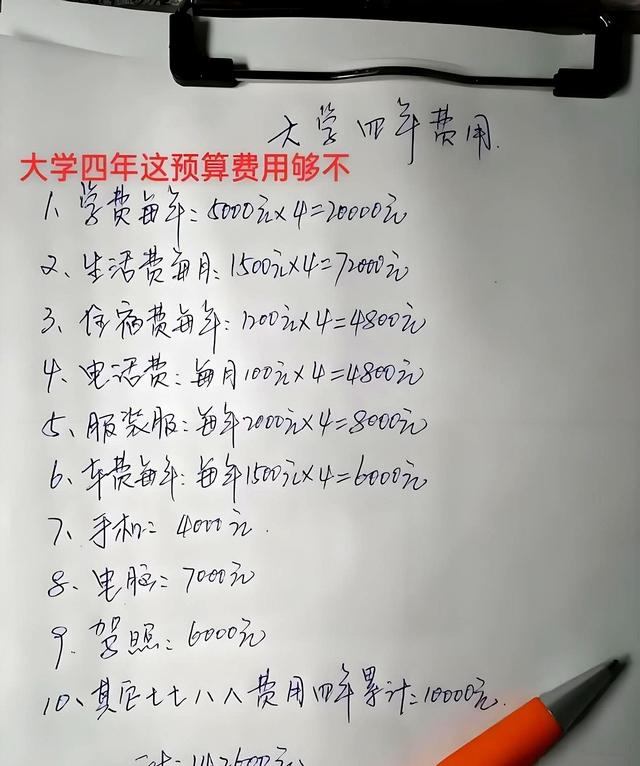 大学四年费用.
大学四年这预算费用够不
1、学费每年:5000元×4=20000元
2、生活费每月:1500元×4=72000元
3、住宿费每年:1200元×4=4800元
4、电话费:每月100元×4=4800元
5、服装服:每年2000元×4=8000元
6、车费每年:每年1500元×4=6000元
7、手机:4000元.
8、电脑:7000元
9、驾照:6000元
10、其它七七八八费用四年累计:10000元.
计:142600元